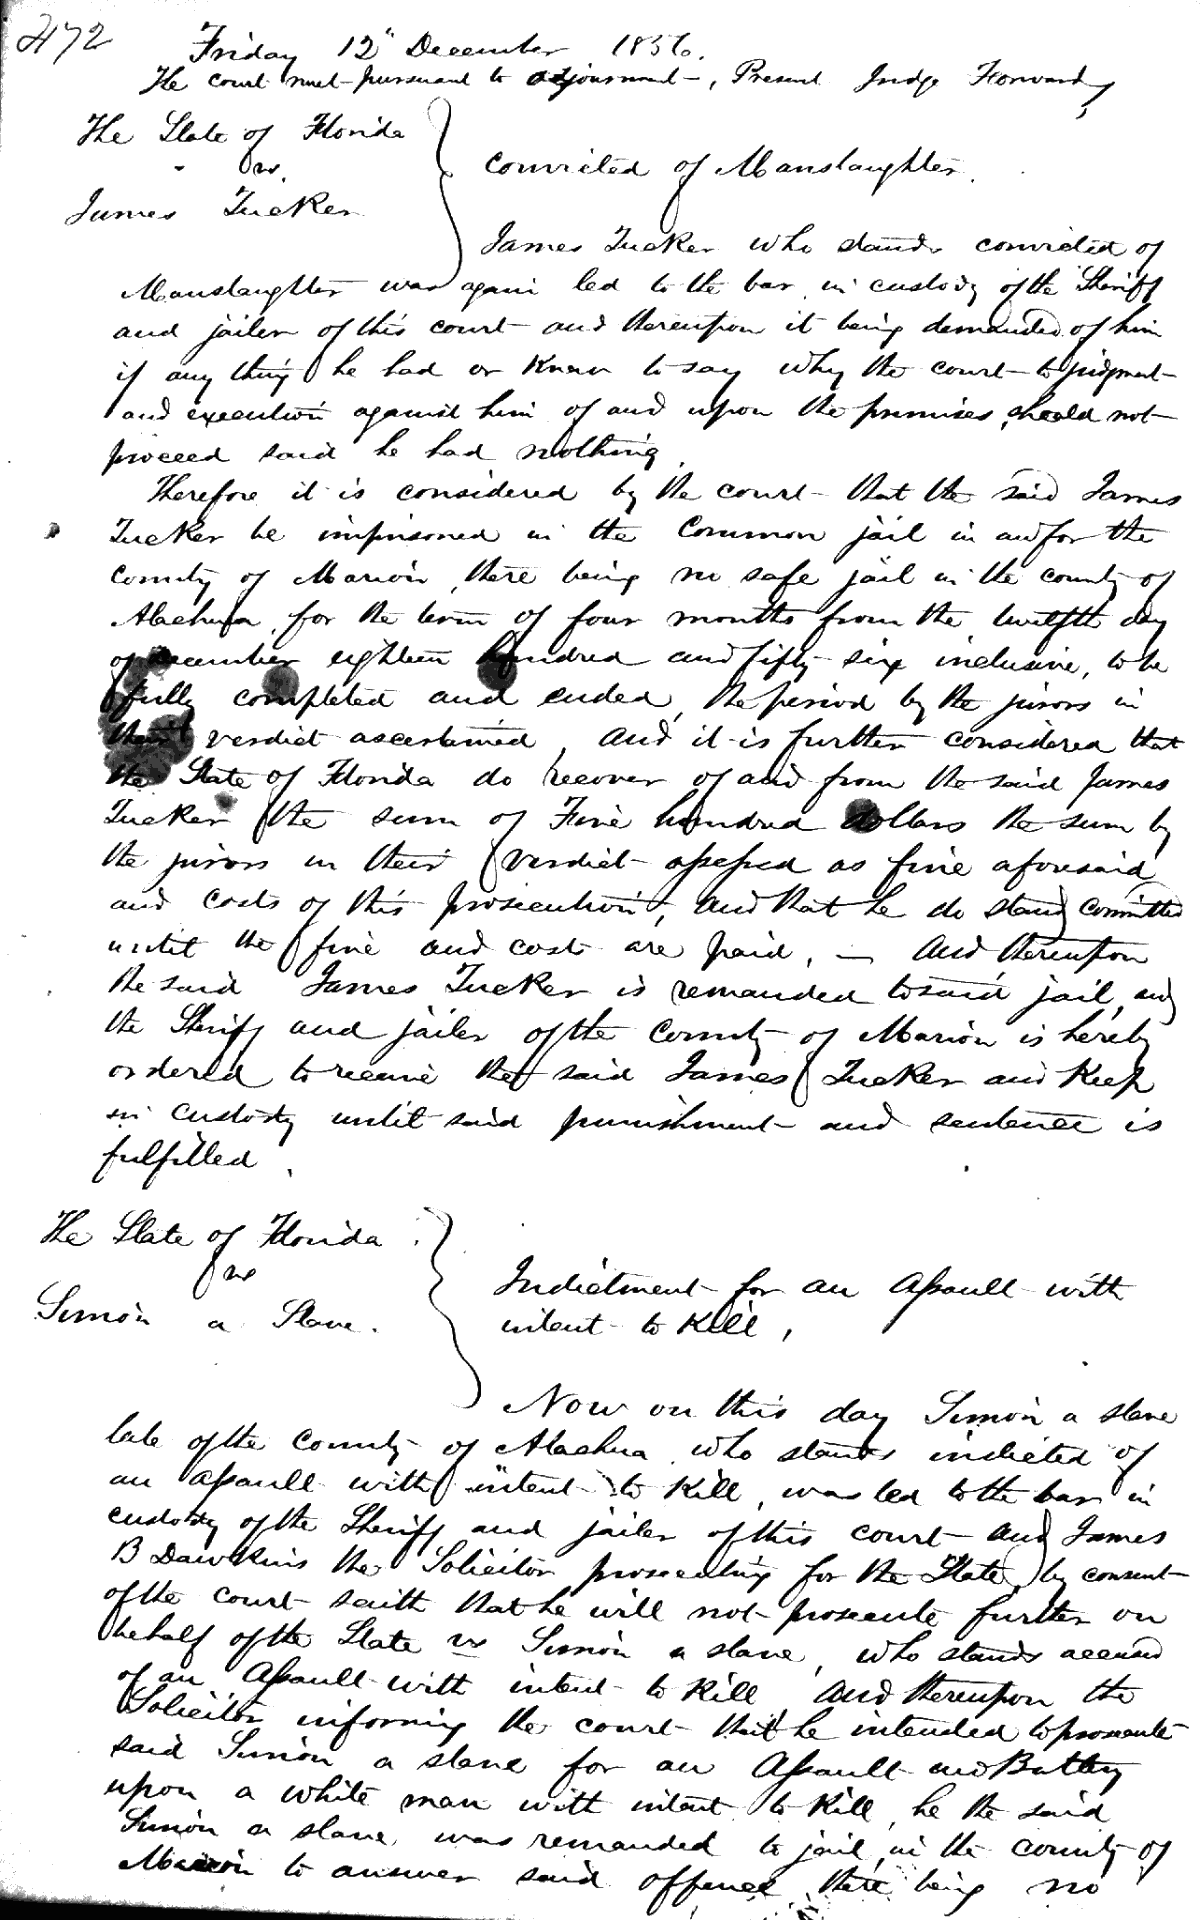 472
Friday 12" December 1856.
The court met pursuant to adjournment, Present Judge Forward,
The State of Florida
vs.
James Tucker
Convicted of Manslaughter.
James Tucker who stands convicted of
Manslaughter was again led to the bar in custody of the Sheriff
and jailer of this court and thereupon it being demanded of him
if any thing he had or knew to say why the court to judgment
and execution against him of and upon the premises should not
proceed said he had nothing.
Therefore it is considered by the court that the said James
Tucker be imprisoned in the Common jail in and for the
County of Marion, there being no safe jail in the county of
Alachua, for the term of four months from the twelfth day
of December eighteen hundred and fifty six inclusive, to be
fully completed and ended, the period by the jurors in
their verdict ascertained, and it is further considered that
the State of Florida do recover of and from the said James
Tucker the sum of Five hundred dollars the sum by
the jurors in their verdict assessed as fine aforesaid
and costs of this prosecution, and that he do stand committed
until the fine and costs are paid, — And thereupon
the said James Tucker is remanded to said jail, and
the Sheriff and jailer of the County of Marion is hereby
ordered to receive the said James Tucker and Keep
in custody until said punishment and sentence is
fulfilled.
The State of Florida
vs
Simon a Slave.
Indictment for an Assault with
intent to Kill,
Now on this day Simon a slave
late of the County of Alachua who stands indicted of
an assault with intent to Kill, was led to the bar in
custody of the Sheriff and jailer of this court and James
B Dawkins the Solicitor prosecuting for the State, by consent
of the court saith that he will not prosecute further on
behalf of the State vs Simon a slave, who stands accused
of an Assault with intent to Kill And thereupon the
Solicitor informing the court that he intended to prosecute
said Simon a slave for an Assault and Battery
upon a white man with intent to Kill, he the said
Simon a slave was remanded to jail, in the county of
Marion to answer said offence there being no